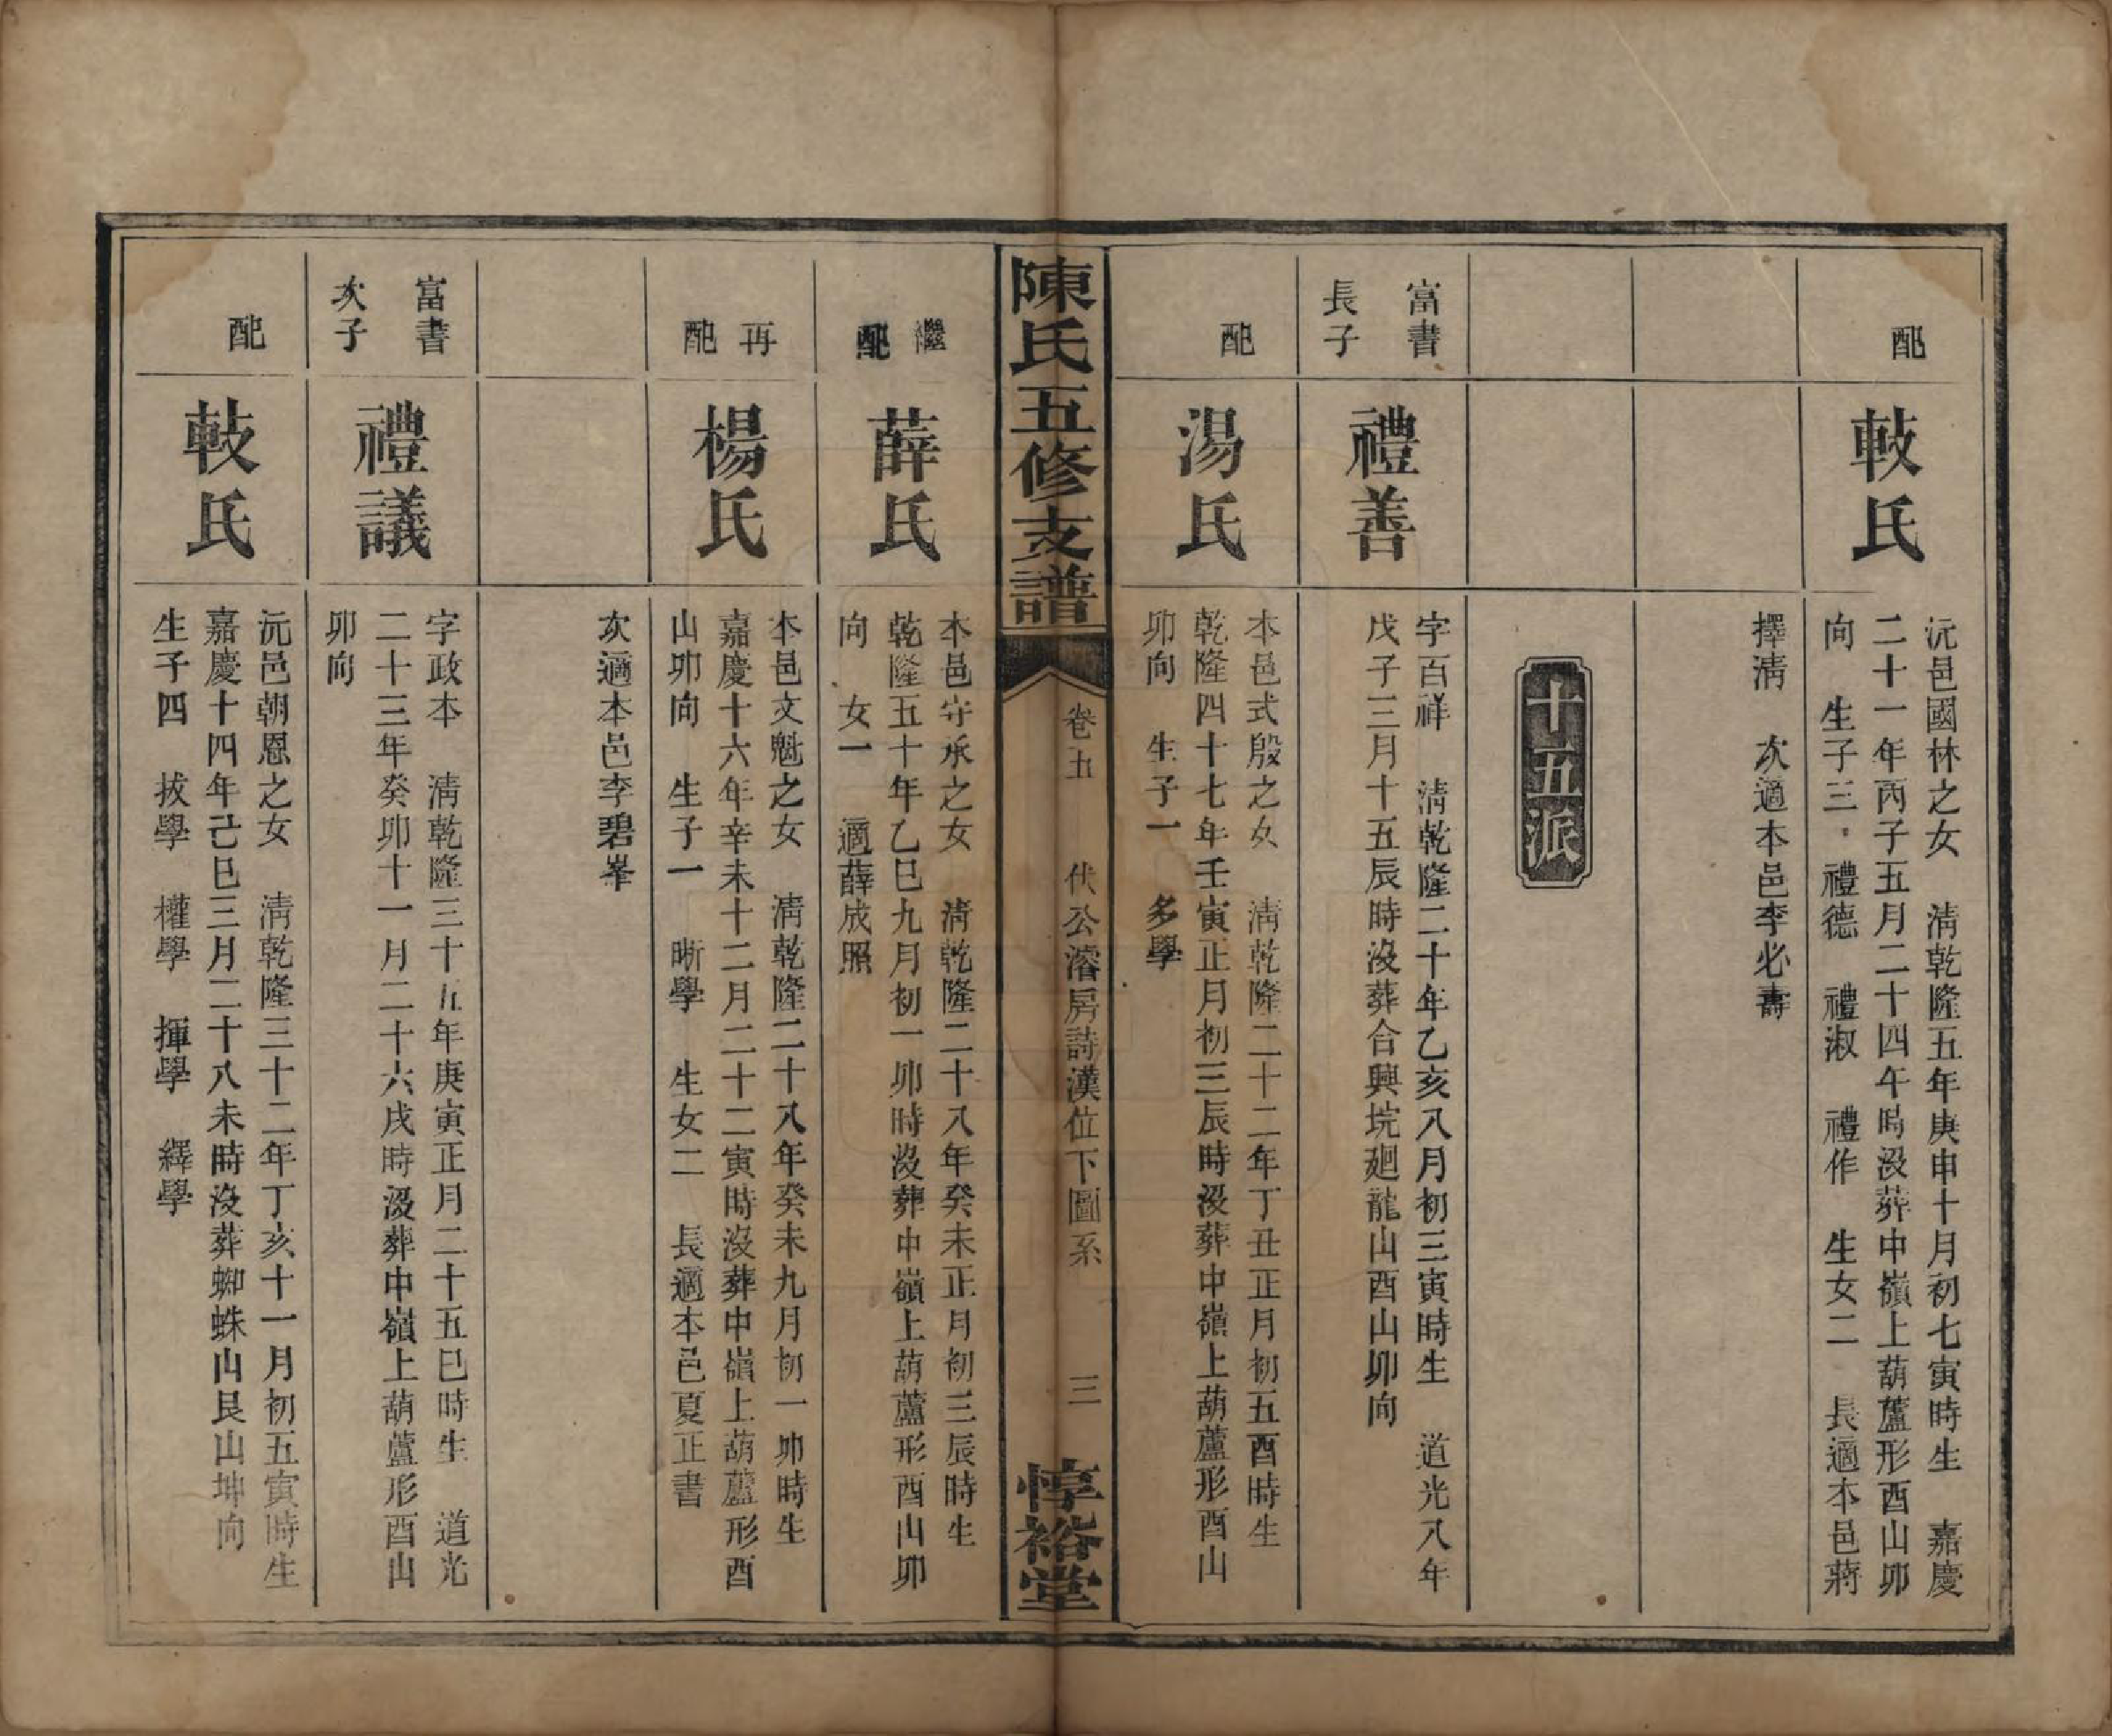 配
㪇氏
沅邑國林之女　清乾隆五年庚申十月初七寅時生　嘉慶
二十一年丙子五月二十四午時没葬中嶺上葫蘆形酉山卯
向　生子三　禮德　禮淑　禮作　生女二　長適本邑蔣
擇清　次適本邑李必壽
十五派
富書
長子
禮善
字百祥　清乾隆二十年乙亥八月初三寅時生　道光八年
戊子三月十五辰時没葬合興垸廻龍山酉山卯向
配
湯氏
本邑式殷之女　清乾隆二十二年丁丑正月初五酉時生
乾隆四十七年壬寅正月初三辰時没葬中嶺上葫蘆形酉山
卯向　生子一　多學
陳氏五修支譜
卷五　伏公濬房詩漢位下圖系　三
惇裕堂
繼
配
薛氏
本邑守承之女　清乾隆二十八年癸未正月初三辰時生
乾隆五十年乙巳九月初一卯時没葬中嶺上葫蘆形酉山卯
向　女一　適薛成照
再
配
楊氏
本邑文魁之女　清乾隆二十八年癸未九月初一卯時生
嘉慶十六年辛未十二月二十二寅時没葬中嶺上葫蘆形酉
山卯向　生子一　晰學　生女二　長適本邑夏正書
次適本邑李碧峯
富書
次子
禮議
字政本　清乾隆三十五年庚寅正月二十五巳時生　道光
二十三年癸卯十一月二十六戌時没葬中嶺上葫蘆形酉山
卯向
配
㪇氏
沅邑朝恩之女　清乾隆三十二年丁亥十一月初五寅時生
嘉慶十四年己巳三月二十八未時没葬蜘蛛山艮山坤向
生子四　拔學　權學　揮學　繹學